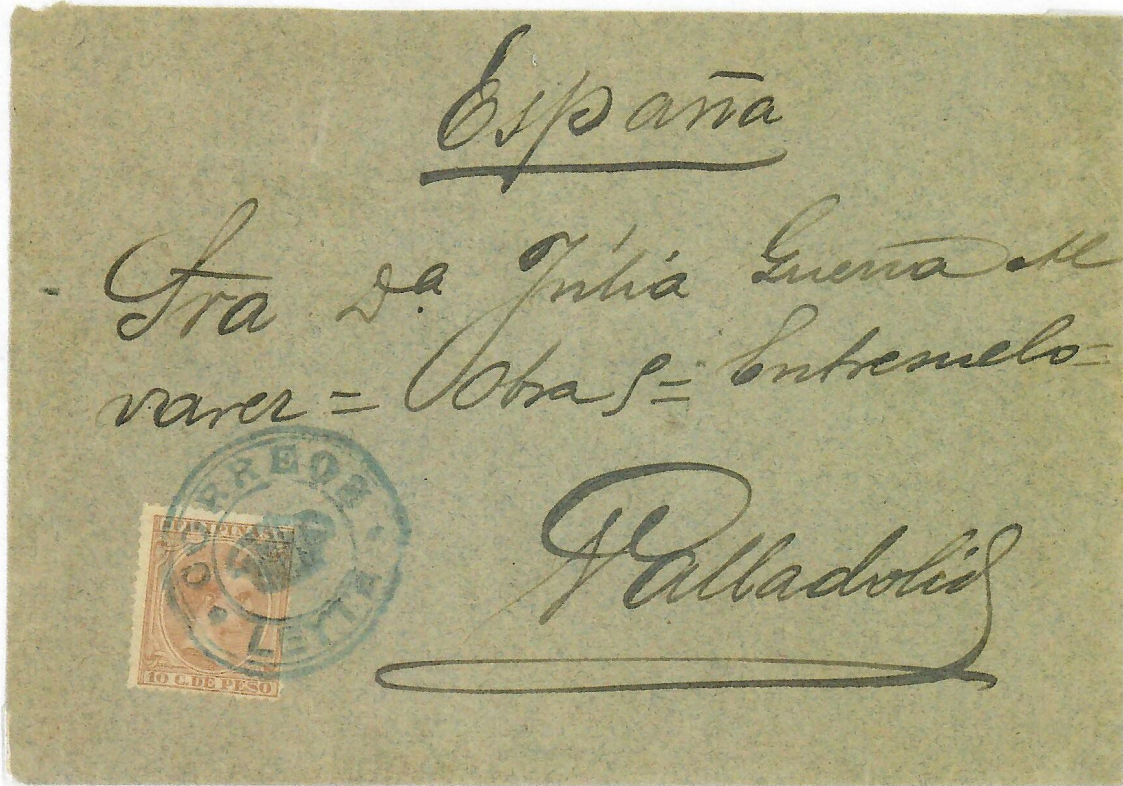 España
Sra Dª Júlia Guerra M
varez = Obra 5 = Entresuelo =
Valladolid
CORREOS
LEYTE
FILIPINAS
10 C. DE PESO